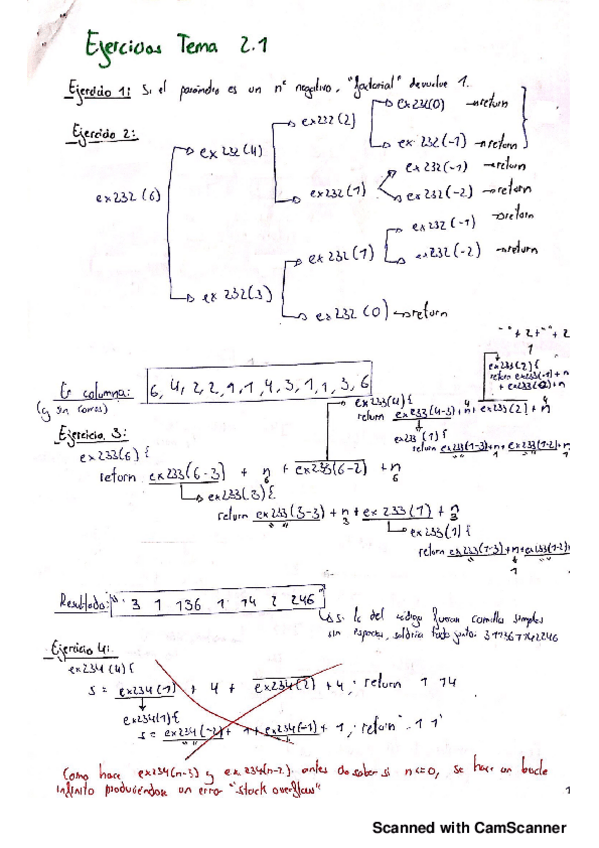 Ejercicios Tema 2.1
Ejercicio 1: Si el parámetro es un nº negativo, "factorial" devuelve 1.
Ejercicio 2:
ex232(6)
ex232(4)
ex232(2)
ex232(0) → return
ex232(-1) → return
ex232(1)
ex232(-1) → return
ex232(-2) → return
ex232(3)
ex232(1)
ex232(-1) → return
ex232(-2) → return
ex232(0) → return
En columna: 6, 4, 2, 2, 1, 1, 4, 3, 1, 1, 3, 6
(y sin comas)
Ejercicio 3:
ex233(6) {
return ex233(6-3) + n + ex233(6-2) + n
6 6
ex233(4) {
return ex233(4-3) + n + ex233(2) + n
4 4
" " + 2 + " " + 2
1
ex233(2) {
return ex233(-1) + n
+ ex233(0) + n
ex233(1) {
return ex233(1-3) + n + ex233(1-2) + n
ex233(3) {
return ex233(3-3) + n + ex233(1) + n
" " 3 3
ex233(1) {
return ex233(1-3) + n + ex233(1-2)
1
Resultado: " 3 1 136 1 14 2 246
si lo del código fueran comillas simples
sin espacios, saldría todo junto: 311361142246
Ejercicio 4:
ex234(4) {
s = ex234(1) + 4 + ex234(2) + 4; return 1 14
ex234(1) {
s = ex234(-2) + 1 + ex234(-1) + 1; return " 1 1
Como hace ex234(n-3) y ex234(n-2) antes de saber si n<=0, se hace un bucle
infinito produciéndose un error "stack overflow"
1
Scanned with CamScanner